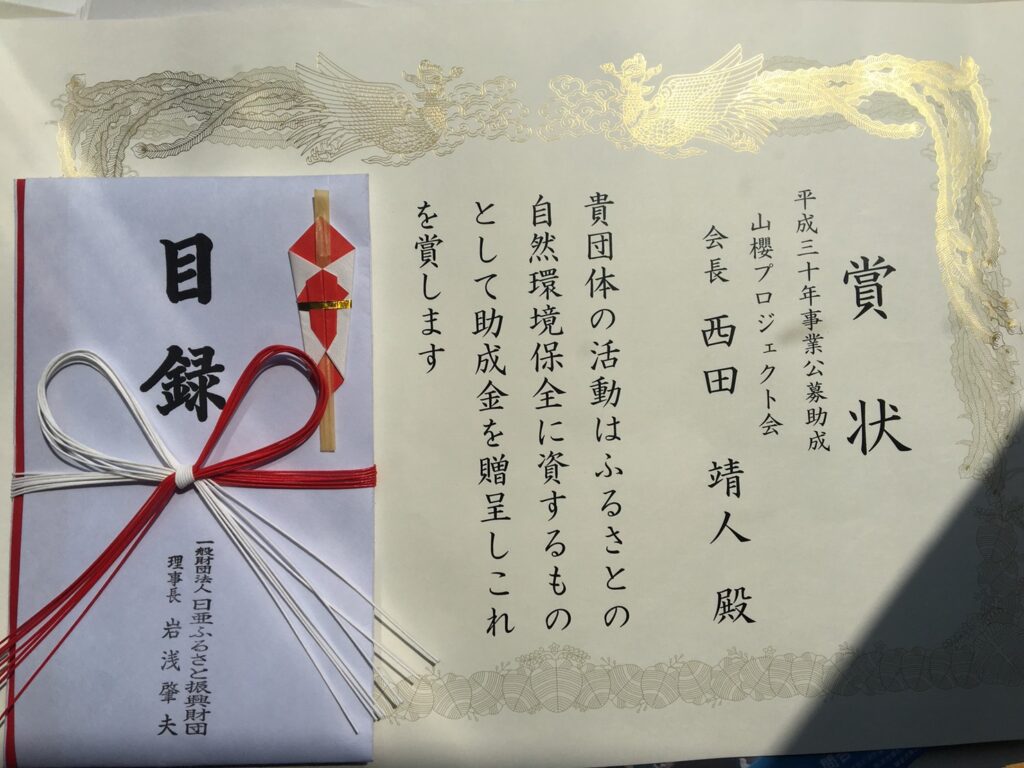 賞状
平成三十年事業公募助成
山櫻プロジェクト会
会長 西田 靖人 殿
貴団体の活動はふるさとの
自然環境保全に資するもの
として助成金を贈呈しこれ
を賞します
目録
一般財団法人 日亜ふるさと振興財団
理事長 岩浅肇夫